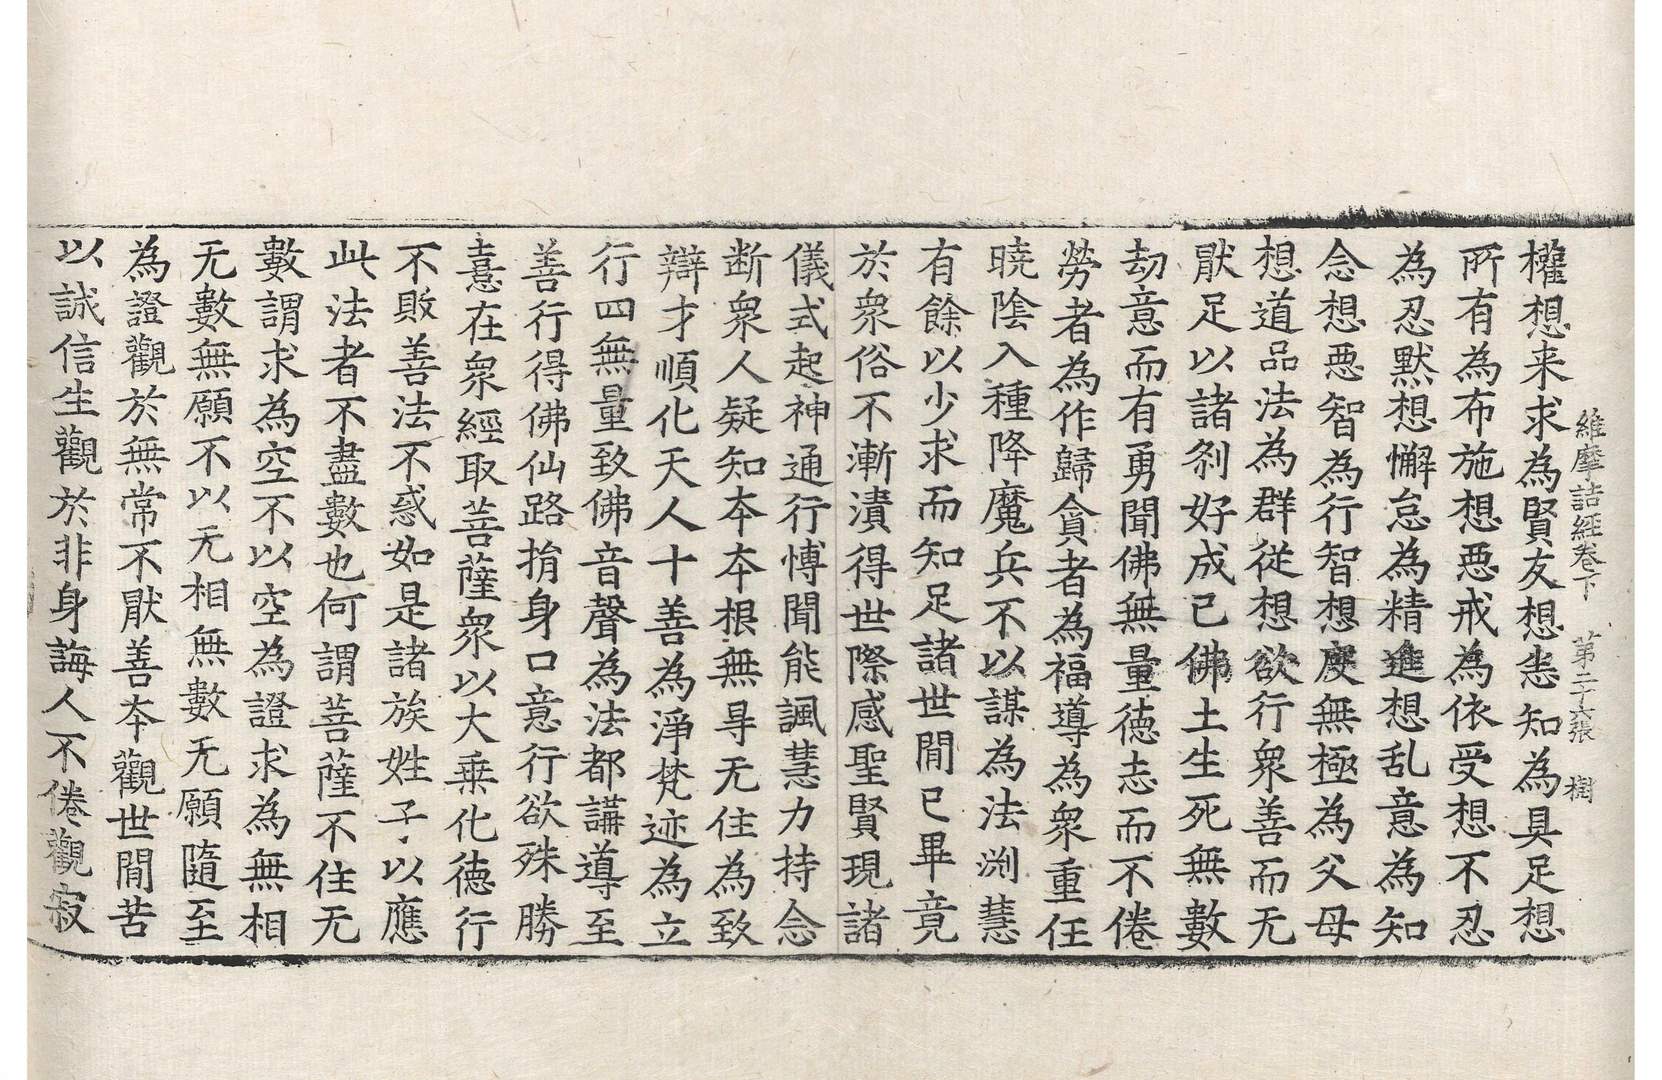 維摩詰經卷下　第二十六張　樹
權想来求為賢友想恚知為具足想
所有為布施想惡戒為依受想不忍
為忍默想懈怠為精進想乱意為知
念想惡智為行智想度無極為父母
想道品法為群従想欲行衆善而无
猒足以諸刹好成己佛土生死無數
劫意而有勇聞佛無量徳志而不倦
勞者為作歸貪者為福導為衆重任
曉陰入種降魔兵不以謀為法渕慧
有餘以少求而知足諸世間已畢竟
於衆俗不漸漬得世際感聖賢現諸
儀式起神通行愽聞能諷慧力持念
断衆人疑知夲夲根無㝵无住為致
辯才順化天人十善為淨梵迹為立
行四無量致佛音聲為法都講導至
善行得佛仙路捎身口意行欲殊勝
憙在衆經取菩薩衆以大乗化徳行
不敗善法不惑如是諸族姓子以應
此法者不盡數也何謂菩薩不住无
數謂求為空不以空為證求為無相
无數無願不以无相無數无願隨至
為證觀於無常不猒善夲觀世間苦
以誠信生觀於非身誨人不倦觀寂